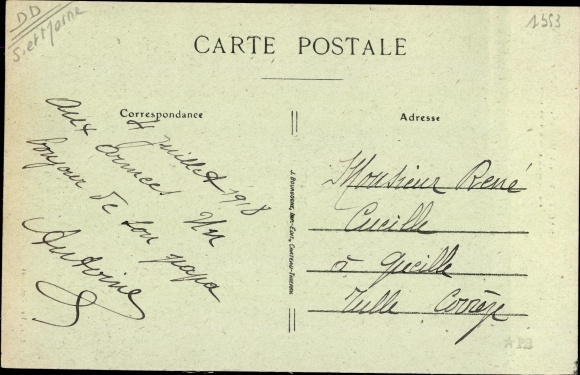 DD
S. et Marne
1553
CARTE POSTALE
Correspondance
4 juillet 1918
aux Armées Un
bonjour de ton papa
Antoine
J. BOURGOGNE, IMP.-EDIT., CHATEAU-THIERRY
Adresse
Monsieur René
Cueille
à Queille
Tulle Corrèze